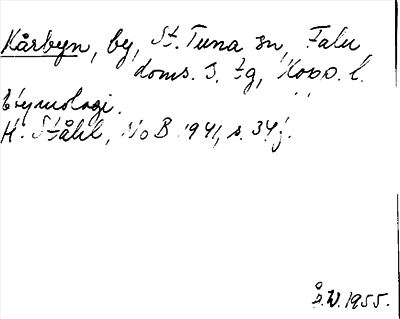 Kårbyn, by, St. Tuna sn, Falu
doms. S. tg, Kopp. l.
Etymologi.
H. Ståhl, NoB 1941, s. 34f.
Å.W. 1955.